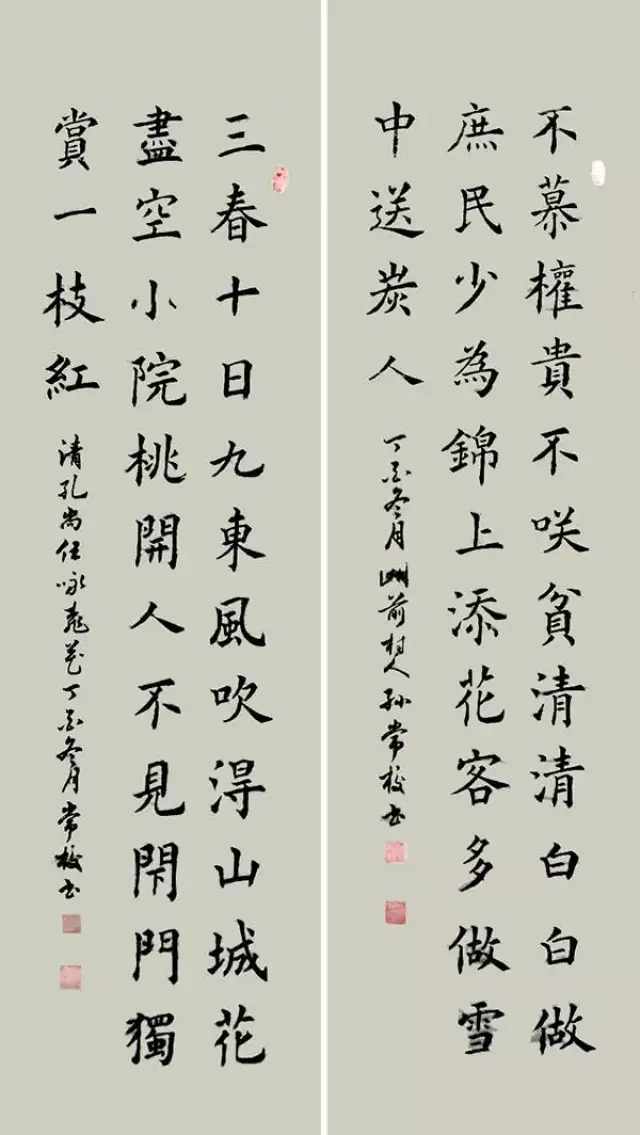 不慕權貴不咲貧清清白白做
庶民少為錦上添花客多做雪
中送炭人
丁酉冬月前村人孙常校书
三春十日九東風吹淂山城花
盡空小院桃開人不見閇門獨
賞一枝紅
清孔尚任咏桃花丁酉冬月常校书